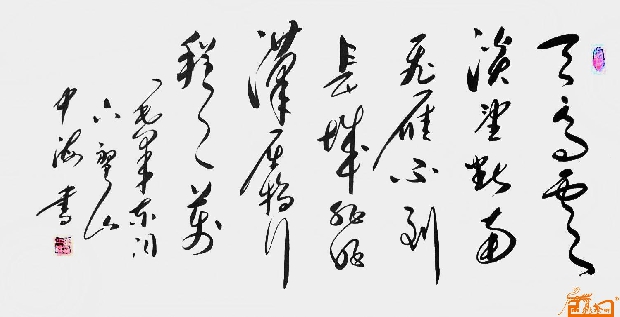 天高雲
淡望断南
飛雁不到
長城非好
漢屈指行
程二萬
毛泽东词
六盘山
中海書